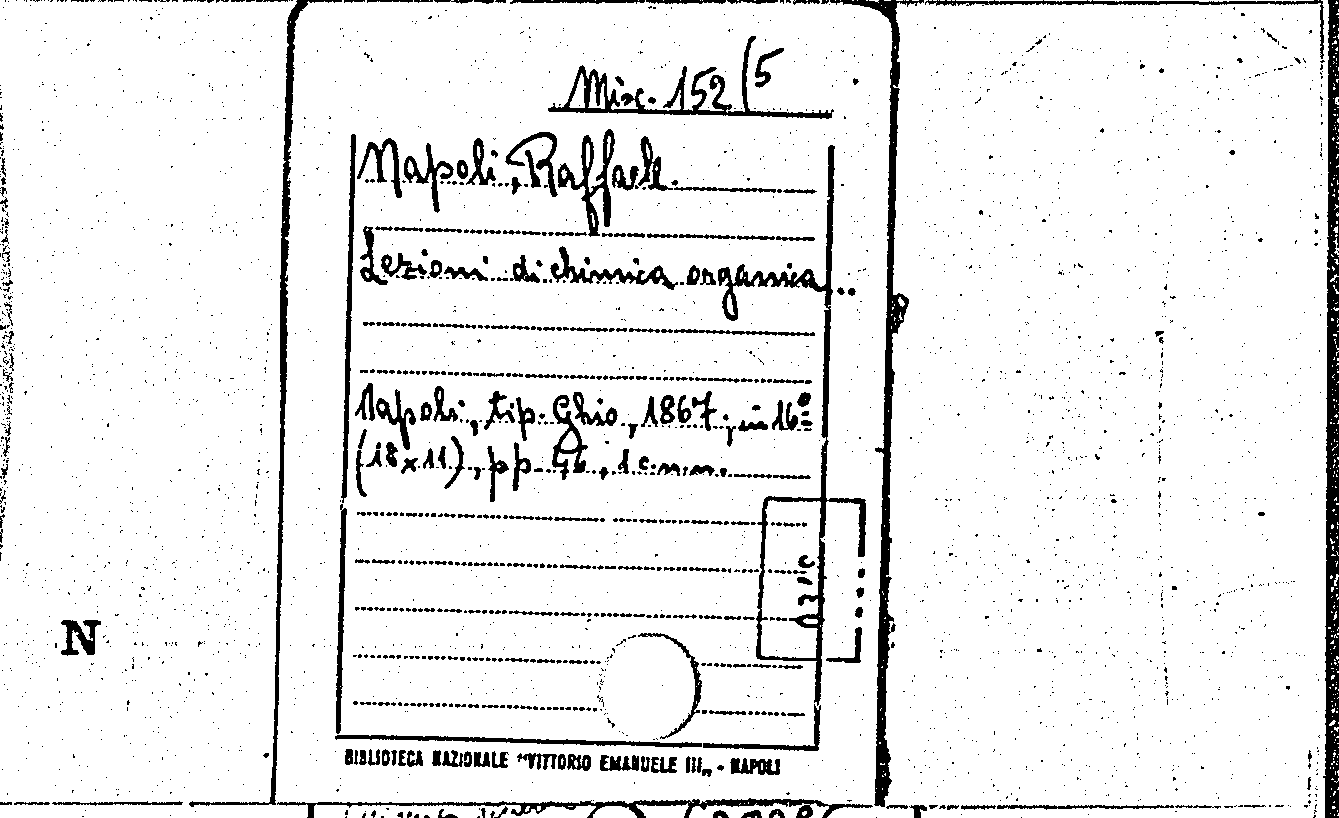 Misc. 152(5
Napoli, Raffaele.
Lezioni di chimica organica...
Napoli, tip. Ghio, 1867; in 16º
(18x11), pp. 46, 1 c.n.n.
N
BIBLIOTECA NAZIONALE "VITTORIO EMANUELE III„ - NAPOLI